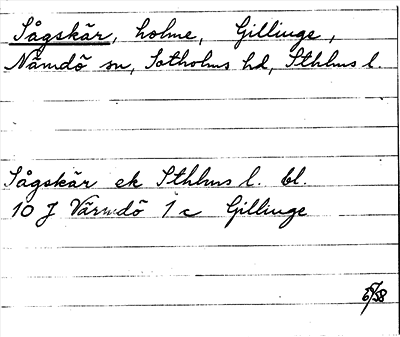 Sågskär, holme, Gillinge,
Nämdö sn, Sotholms hd, Sthlms l.
Sågskär ek Sthlms l. bl.
10 J Värmdö 1 c Gillinge